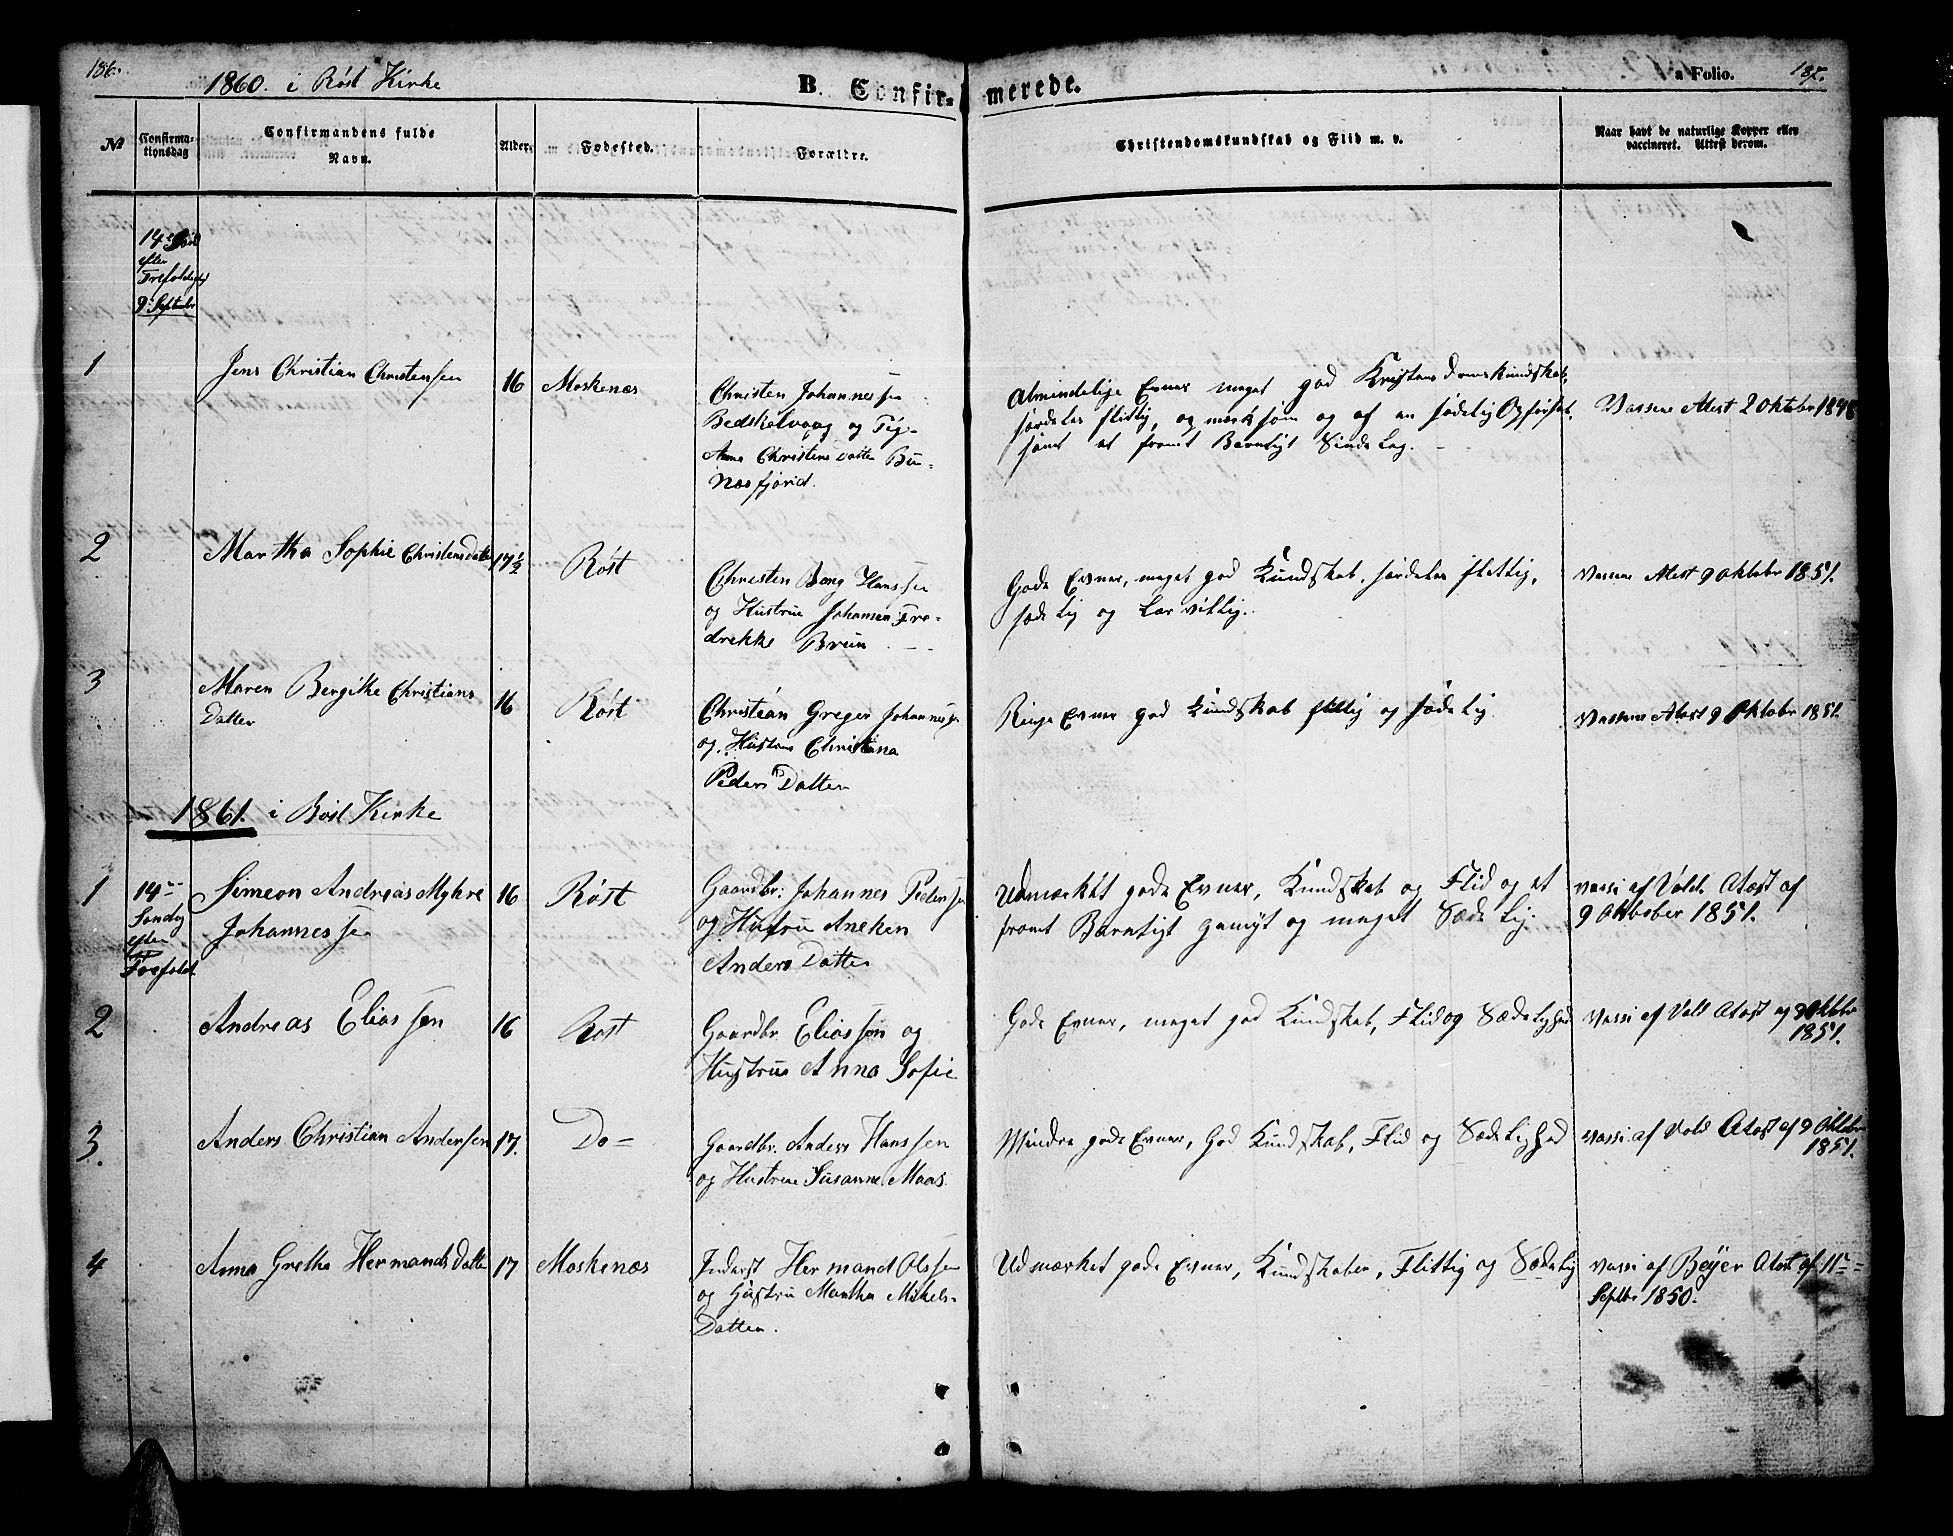 186.
1860. i Röst Kirke
B. Confir-
merede.
a Folio.
187.
No
Confirma-
tionsdag
Confirmandens fulde
Navn.
Alder.
Fødested.
Forældre.
Christendomskundskab og Flid m. v.
Naar havt de naturlige Kopper eller
vaccineret. Attest derom.
14de
efter
Trefoldighed
9 Septembr
1
Jens Christian Christensen
16
Moskenæs
Christen Johannessen
og
Anna Christens Datter Bu-
næsfjord.
Almindelige Evner meget god Kristendomskundskab,
særdeles flittig, og af en sædelig Opførsel,
samt et fromt Barnligt Sindelag.
Vassene Atest 2 Oktobr 1848
2
Martha Sophie Christens Datter
17½
Röst
Christen Bong Hanssen
og Hustrue Johanna Fre-
drekke Brun
Gode Evner, meget god Kundskab, særdeles flittig,
sædelig og Lærvillig.
Vassene Atest 9 Oktobr 1851.
3
Maren Bergitte Christians
Datter
16
Röst
Christian Greger Johannessen
og Hustrue Christiana
Peders Datter
Ringe Evner god Kundskab flittig og sædelig
Vassene Atest 9 Oktobr 1851.
1861. i Röst Kirke
1
14de
Søndag
efter
Trefold.
Simeon Andreas Myhre
Johannessen
16
Röst
Gaardbr. Johannes Pedersen
og Hustru Aneken
Anders Datter
Udmærket gode Evner, Kundskab og Flid og et
fromt Barnligt gemyt og meget Sædelig.
Vassi af Vold Atæst af
9 Oktober 1851.
2
Andreas Eliassen
16
Röst
Gaardbr. Eliassen og
Hustrue Anna Sofie
Gode Evner, meget god Kundskab, Flid og Sædelighed
Vassi af Vold Atæst af 9 Oktbr
1851.
3.
Anders Christian Andersen
17.
Do=
Gaardbr. Anders Hanssen
og Hustrue Susanne Maas.
Mindre gode Evner, God Kundskab, Flid og Sædelighed
Vassi af Vold Atæst af 9 Oktbr
1851.
4
Anna Gretha Hermands Datter
17
Moskenæs
Inderst Hermand Olsen
og Hustru Martha Mikels-
Datter.
Udmærket gode Evner, Kundskaber, Flittig og Sædelig
Vassi af Beyer Atæst af 11te
Septbr 1850.